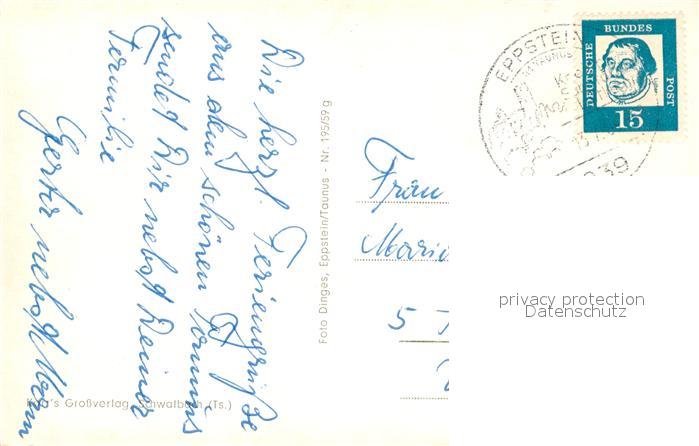 Die herzl. Feriengrüße
aus dem schönen Taunus
sendet Dir nebst Deiner
Familie
Gerta nebst Mann
Foto Dinges, Eppstein/Taunus - Nr. 195/59 g
Großverlag, Schwalbach (Ts.)
Frau
5
EPPSTEIN
TAUNUS
DEUTSCHE
BUNDES
POST
15
privacy protection
Datenschutz